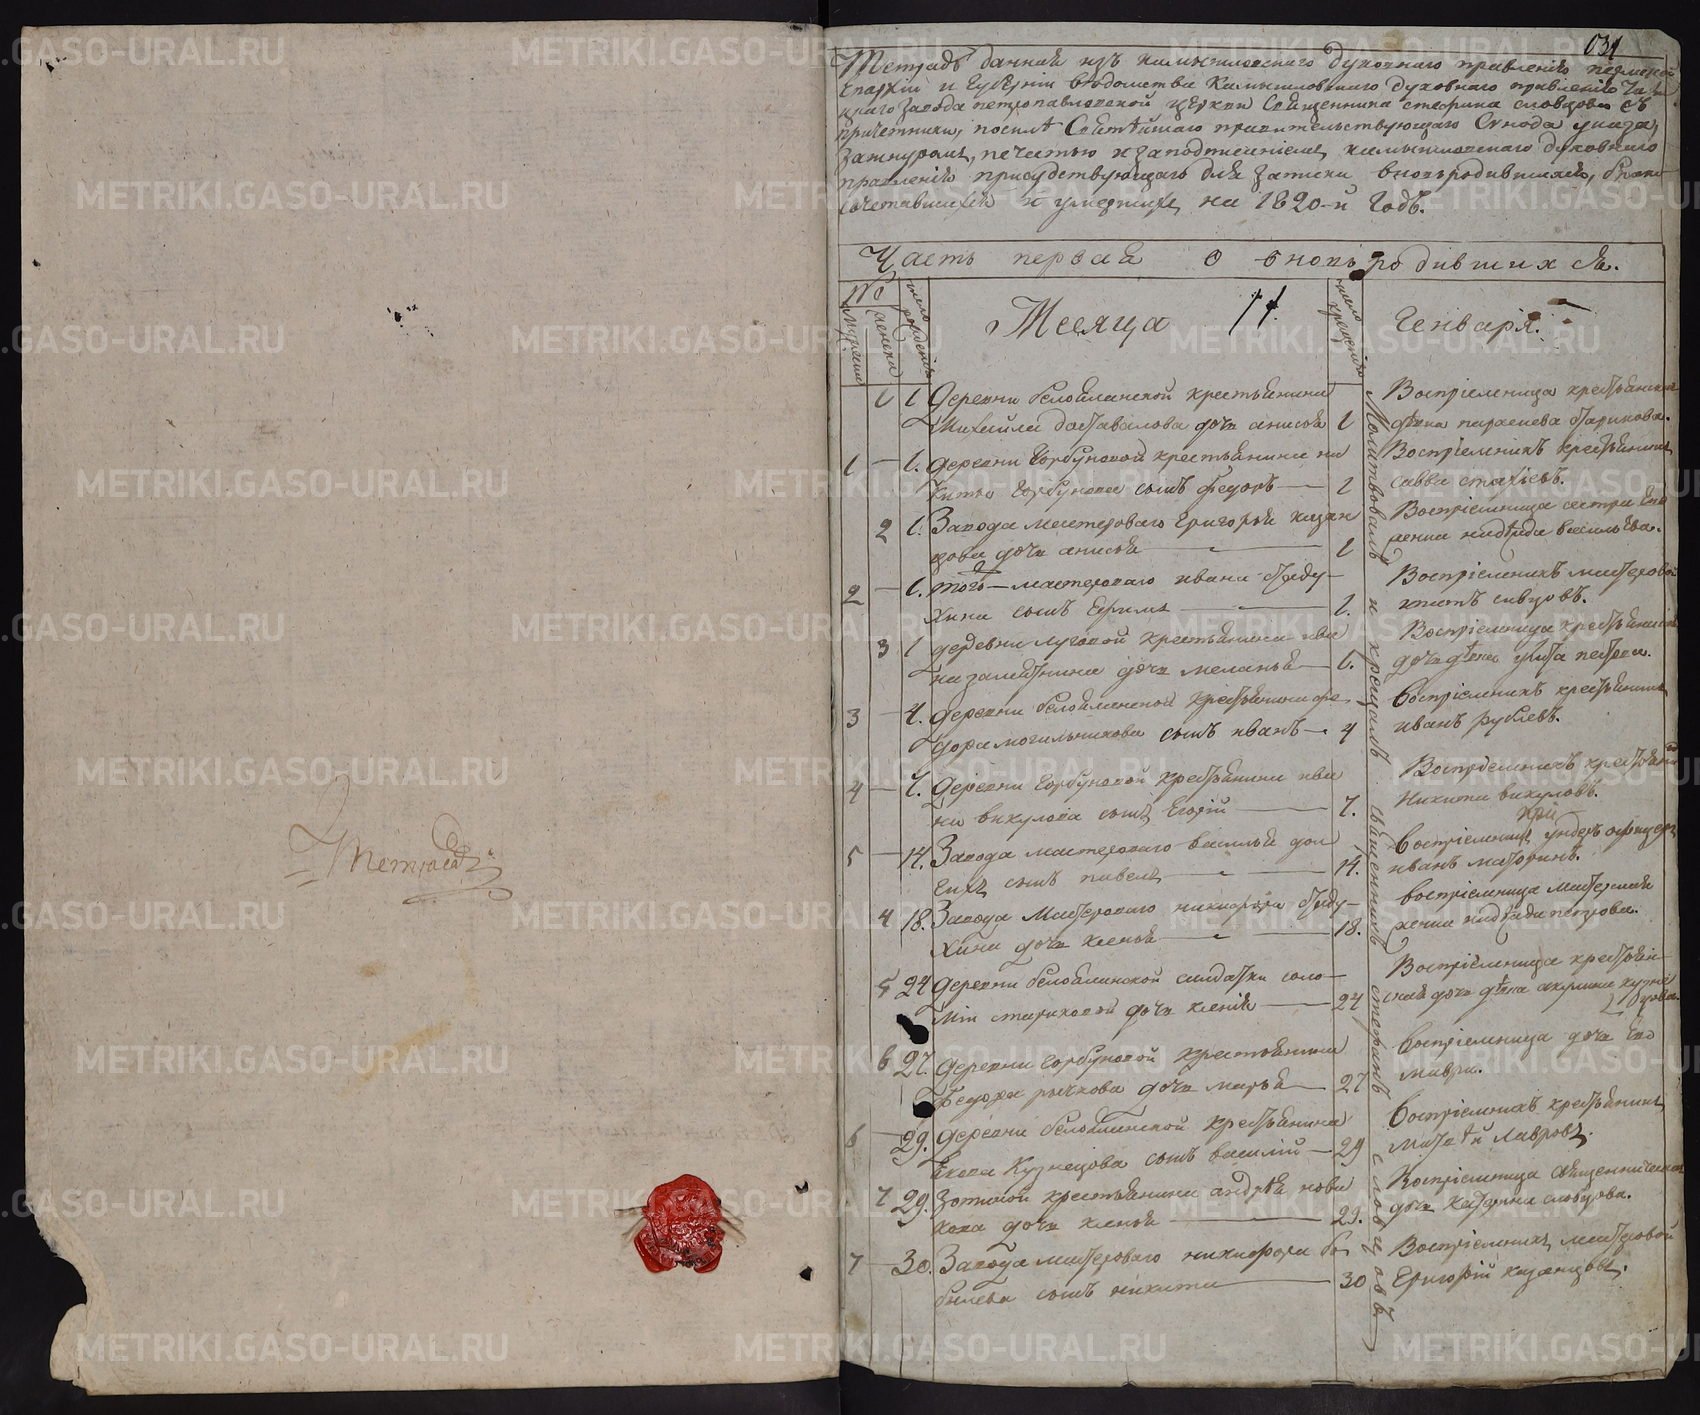 Тетрадь
034
Тетрадь данная изъ камышловскаго духовнаго правленія пермской
Епархіи и Губерніи вѣдомства Камышловскаго духовнаго правленія
завода петропавловской церкви Священника стефана словцова съ
причетники, посилѣ Святѣйшаго правительствующаго Сѵнода указа,
зашнуромъ, печатью и заподписаніемъ камышловскаго духовнаго
правленія присудствующаго для записки вновьродившихся, брако
сочетавшихся и умершихъ на 1820-й Годъ.
Часть первая о вновь родившихся.
№ число рожденія Месяца 11. число крещенія Генваря.
мужеска женска
1 1 Деревни белоѣланской крестьянина
Михаила доставалова дочь анисья 1
Воспріемница крестьянская
дѣвка парасковья старикова.
1 — 1. деревни Горбуновой крестьянина ни
киты Горбунова сынъ федоръ — 1
Воспріемникъ крестьянинъ
савва стахіевъ.
2 1. Завода мастероваго Григорья казан
цова дочь анисья — 1
Воспріемница сестра
надѣжда васильева.
2 — 1. того — мастероваго ивана
сынъ Ефимъ — 1.
Воспріемникъ мастеровой
3 1 деревни луговой крестьянина ива
на дочь меланья — 1.
Воспріемница крестьянская
дочь дѣвка петрова.
3 — 4. деревни белоѣланской крестьянина фе
дора могильникова сынъ иванъ — 4
Воспріемникъ крестьянинъ
иванъ рублевъ.
4 — 7. Деревни Горбуновой крестьянина ива
на викулова сынъ Георгій — 7.
Воспріемникъ крестьянинъ
Никита викуловъ.
5 — 14. Завода мастероваго василья дол
гихъ сынъ павелъ — 14.
Воспріемникъ ундеръ офицеръ
иванъ
4 18. Завода Мастероваго никифора
дочь ксенья — 18.
воспріемница мастерская
жена надѣжда петрова.
5 24 Деревни белоѣланской солдатки соло
міи стариковой дочь ксенія — 24
Воспріемница крестьян
ская дочь дѣвка акулина кузне
цова.
6 27. Деревни Горбуновой крестьянина
Федора рычкова дочь марья — 27
Воспріемница дочь Его
мавра.
6 — 29. Деревни белоѣланской крестьянина
Якова Кузнецова сынъ василій — 29
Воспріемникъ крестьянинъ
матвѣй Лавровъ.
7 29. Зотиной крестьянина андрѣя нова
кова дочь ксенья — 29.
Воспріемница священническая
дочь Катерина словцова.
7 — 30. Завода мастероваго никифора бо
былева сынъ никита — 30
Воспріемникъ мастеровой
Григорій казанцовъ.
Молитвовалъ и крещалъ священникъ стефанъ словцовъ
METRIKI.GASO-URAL.RU